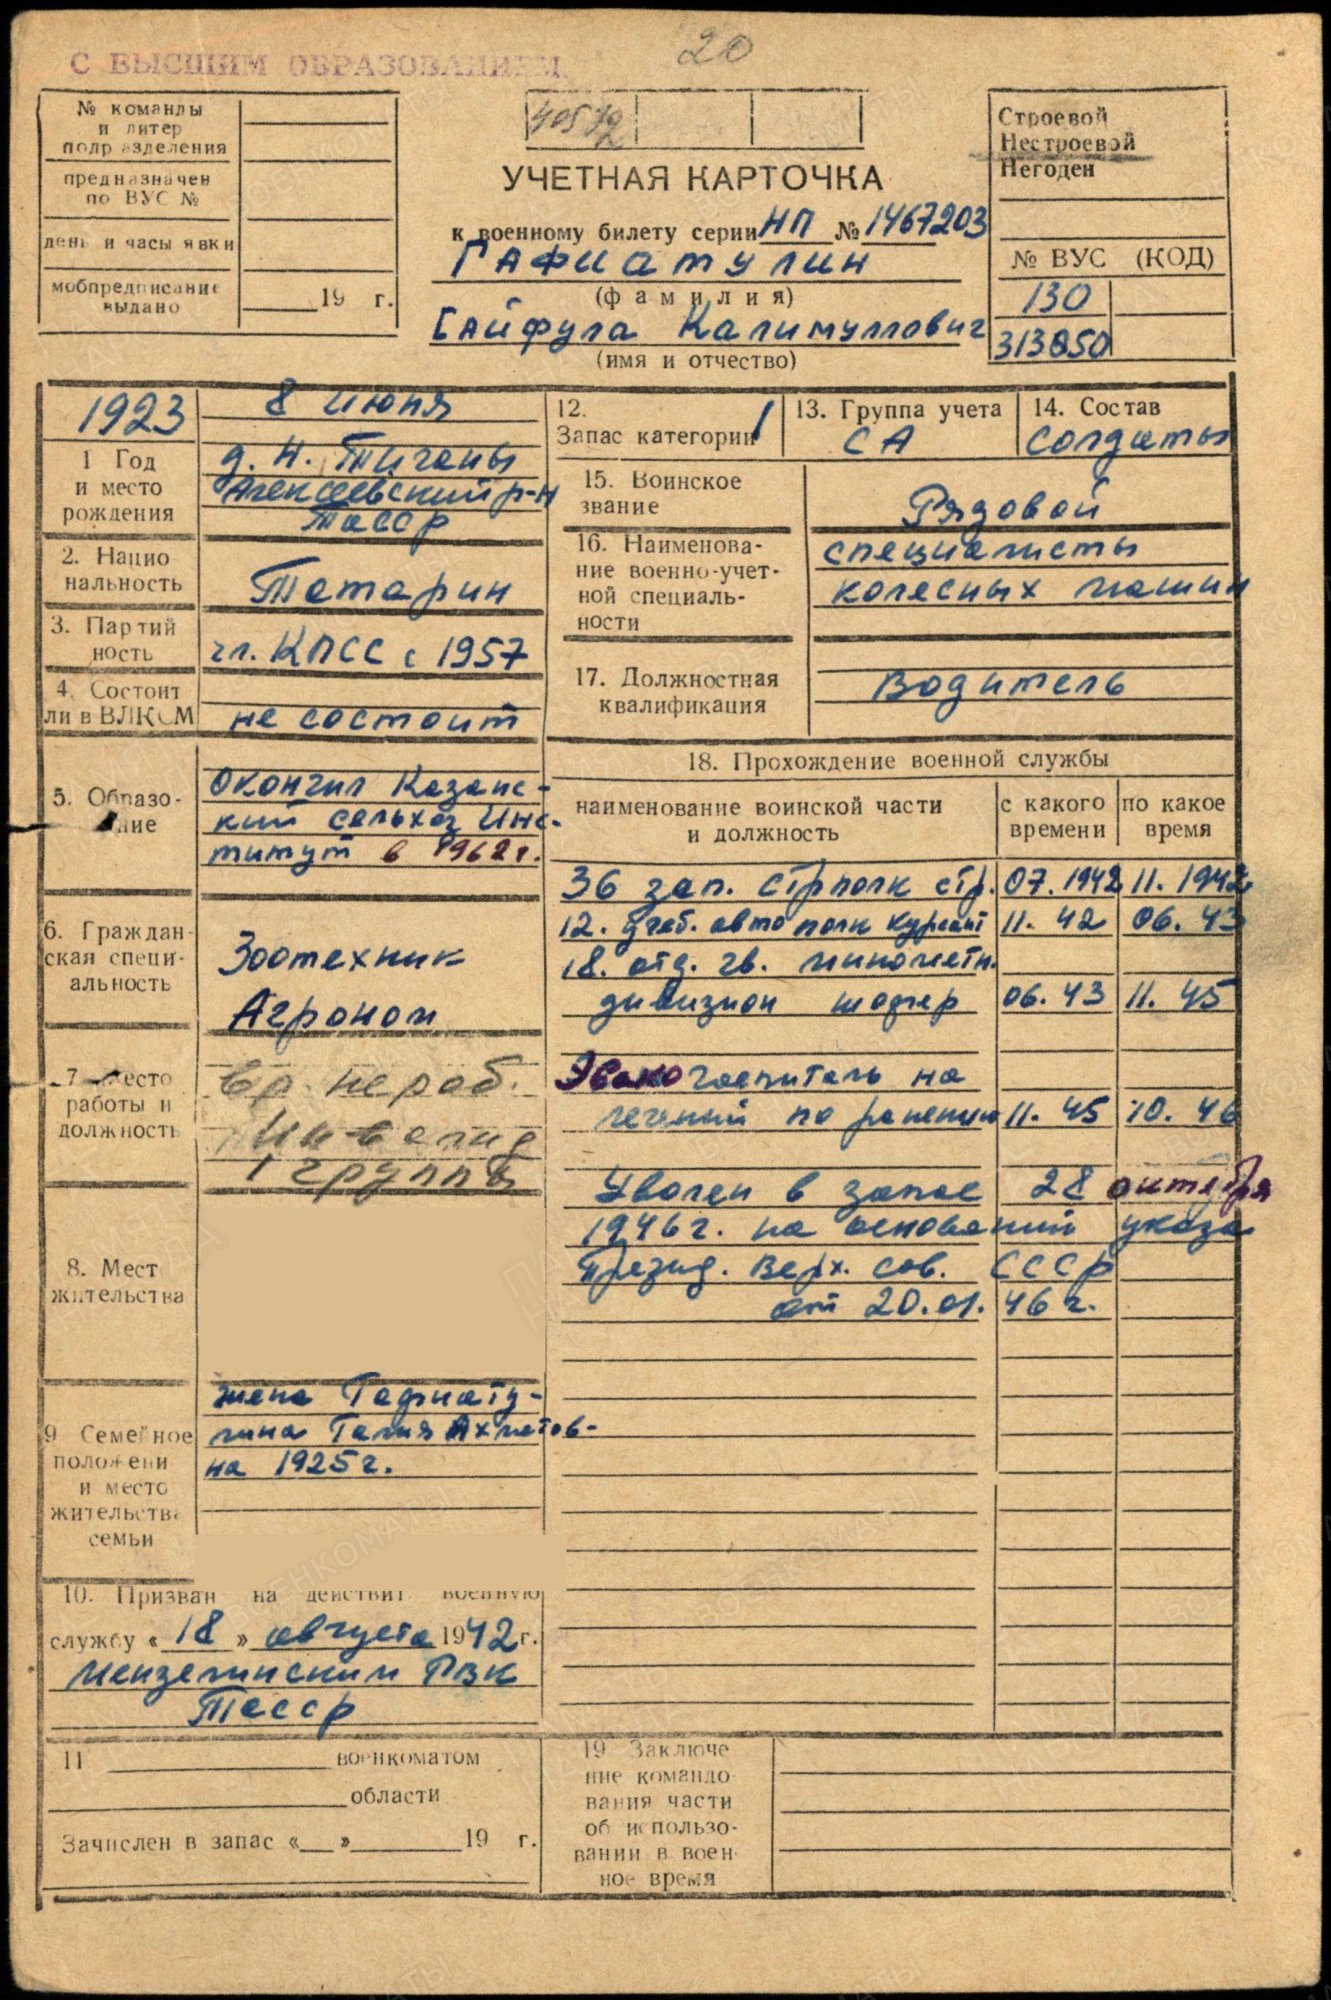 20
С ВЫСШИМ ОБРАЗОВАНИЕМ
№ команды
и литер
подразделения
предназначен
по ВУС №
день и часы явки
мобпредписание
выдано
19 г.
40572
УЧЕТНАЯ КАРТОЧКА
к военному билету серии НП № 1467203
Гафиатулин
(фамилия)
Гайфула Калимуллович
(имя и отчество)
Строевой
Нестроевой
Негоден
№ ВУС (КОД)
130
313850
1923
1 Год
и место
рождения
8 июня
д. Н. Тиганы
Алексеевский р-н
ТАССР
2. Нацио
нальность
Татарин
3. Партий
ность
чл. КПСС с 1957
4. Состоит
ли в ВЛКСМ
не состоит
5. Образо-
ние
Окончил Казанс-
кий сельхоз Инс-
титут в 1962 г.
6. Граждан-
ская специ-
альность
Зоотехник
Агроном
7. Место
работы и
должность
Вр. не раб.
Инвалид
1 группы
8. Мест
жительства
9 Семейное
положени
и место
жительства
семьи
жена Гафиату-
лина Галия Ахметов-
на 1925 г.
10. Призван на действит. военную
службу « 18 » августа 1942 г.
Мензелинским РВК
ТАССР
11 военкоматом
области
Зачислен в запас « » 19 г.
12.
Запас категории 1
13. Группа учета
СА
14. Состав
солдаты
15. Воинское
звание
Рядовой
16. Наименова-
ние военно-учет-
ной специаль-
ности
специалисты
колесных машин
17. Должностная
квалификация
Водитель
18. Прохождение военной службы
наименование воинской части
и должность
с какого
времени
по какое
время
36 зап. стрполк стр. 07.1942 11.1942
12. учеб. автополк курсант 11.42 06.43
18. отд. гв. минометн.
дивизион шофер 06.43 11.45
Эвакогоспиталь на
лечении по ранению 11.45 10.46
Уволен в запас 28 октября
1946 г. на основании указа
Презид. Верх. Сов. СССР
от 20.01.46 г.
19 Заключе
ние командо-
вания части
об использо-
вании в воен-
ное время